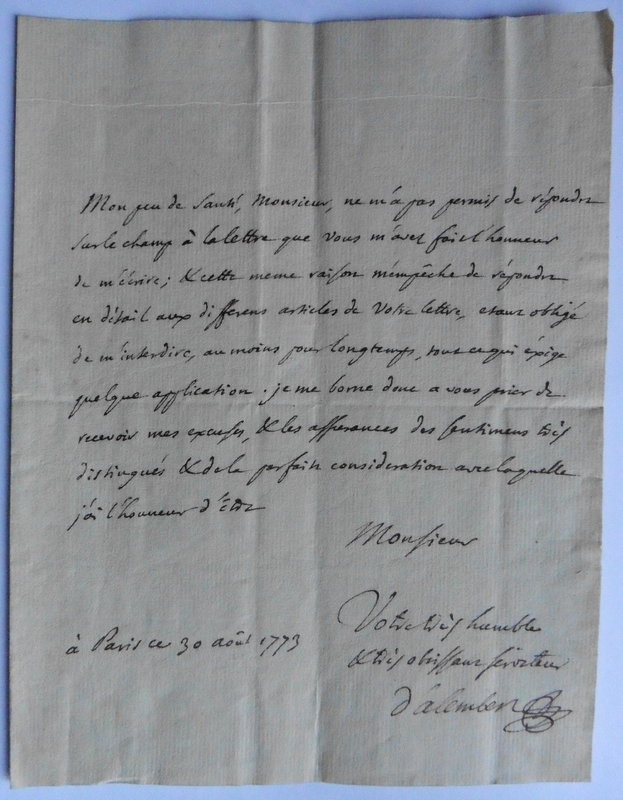 Mon peu de santé, Monsieur, ne m'a pas permis de répondre
sur le champ à la lettre que vous m'avez fait l'honneur
de m'écrire; & cette meme raison m'empêche de répondre
en détail aux differens articles de Votre lettre, etant obligé
de m'interdire, au moins pour longtemps, tout ce qui éxige
quelque application. je me borne donc a vous prier de
recevoir mes excuses, & les assurances des sentimens très
distingués & de la parfaite consideration avec laquelle
j'ai l'honneur d'être
Monsieur
à Paris ce 30 août 1773
Votre très humble
& très obéissant serviteur
D'alembert